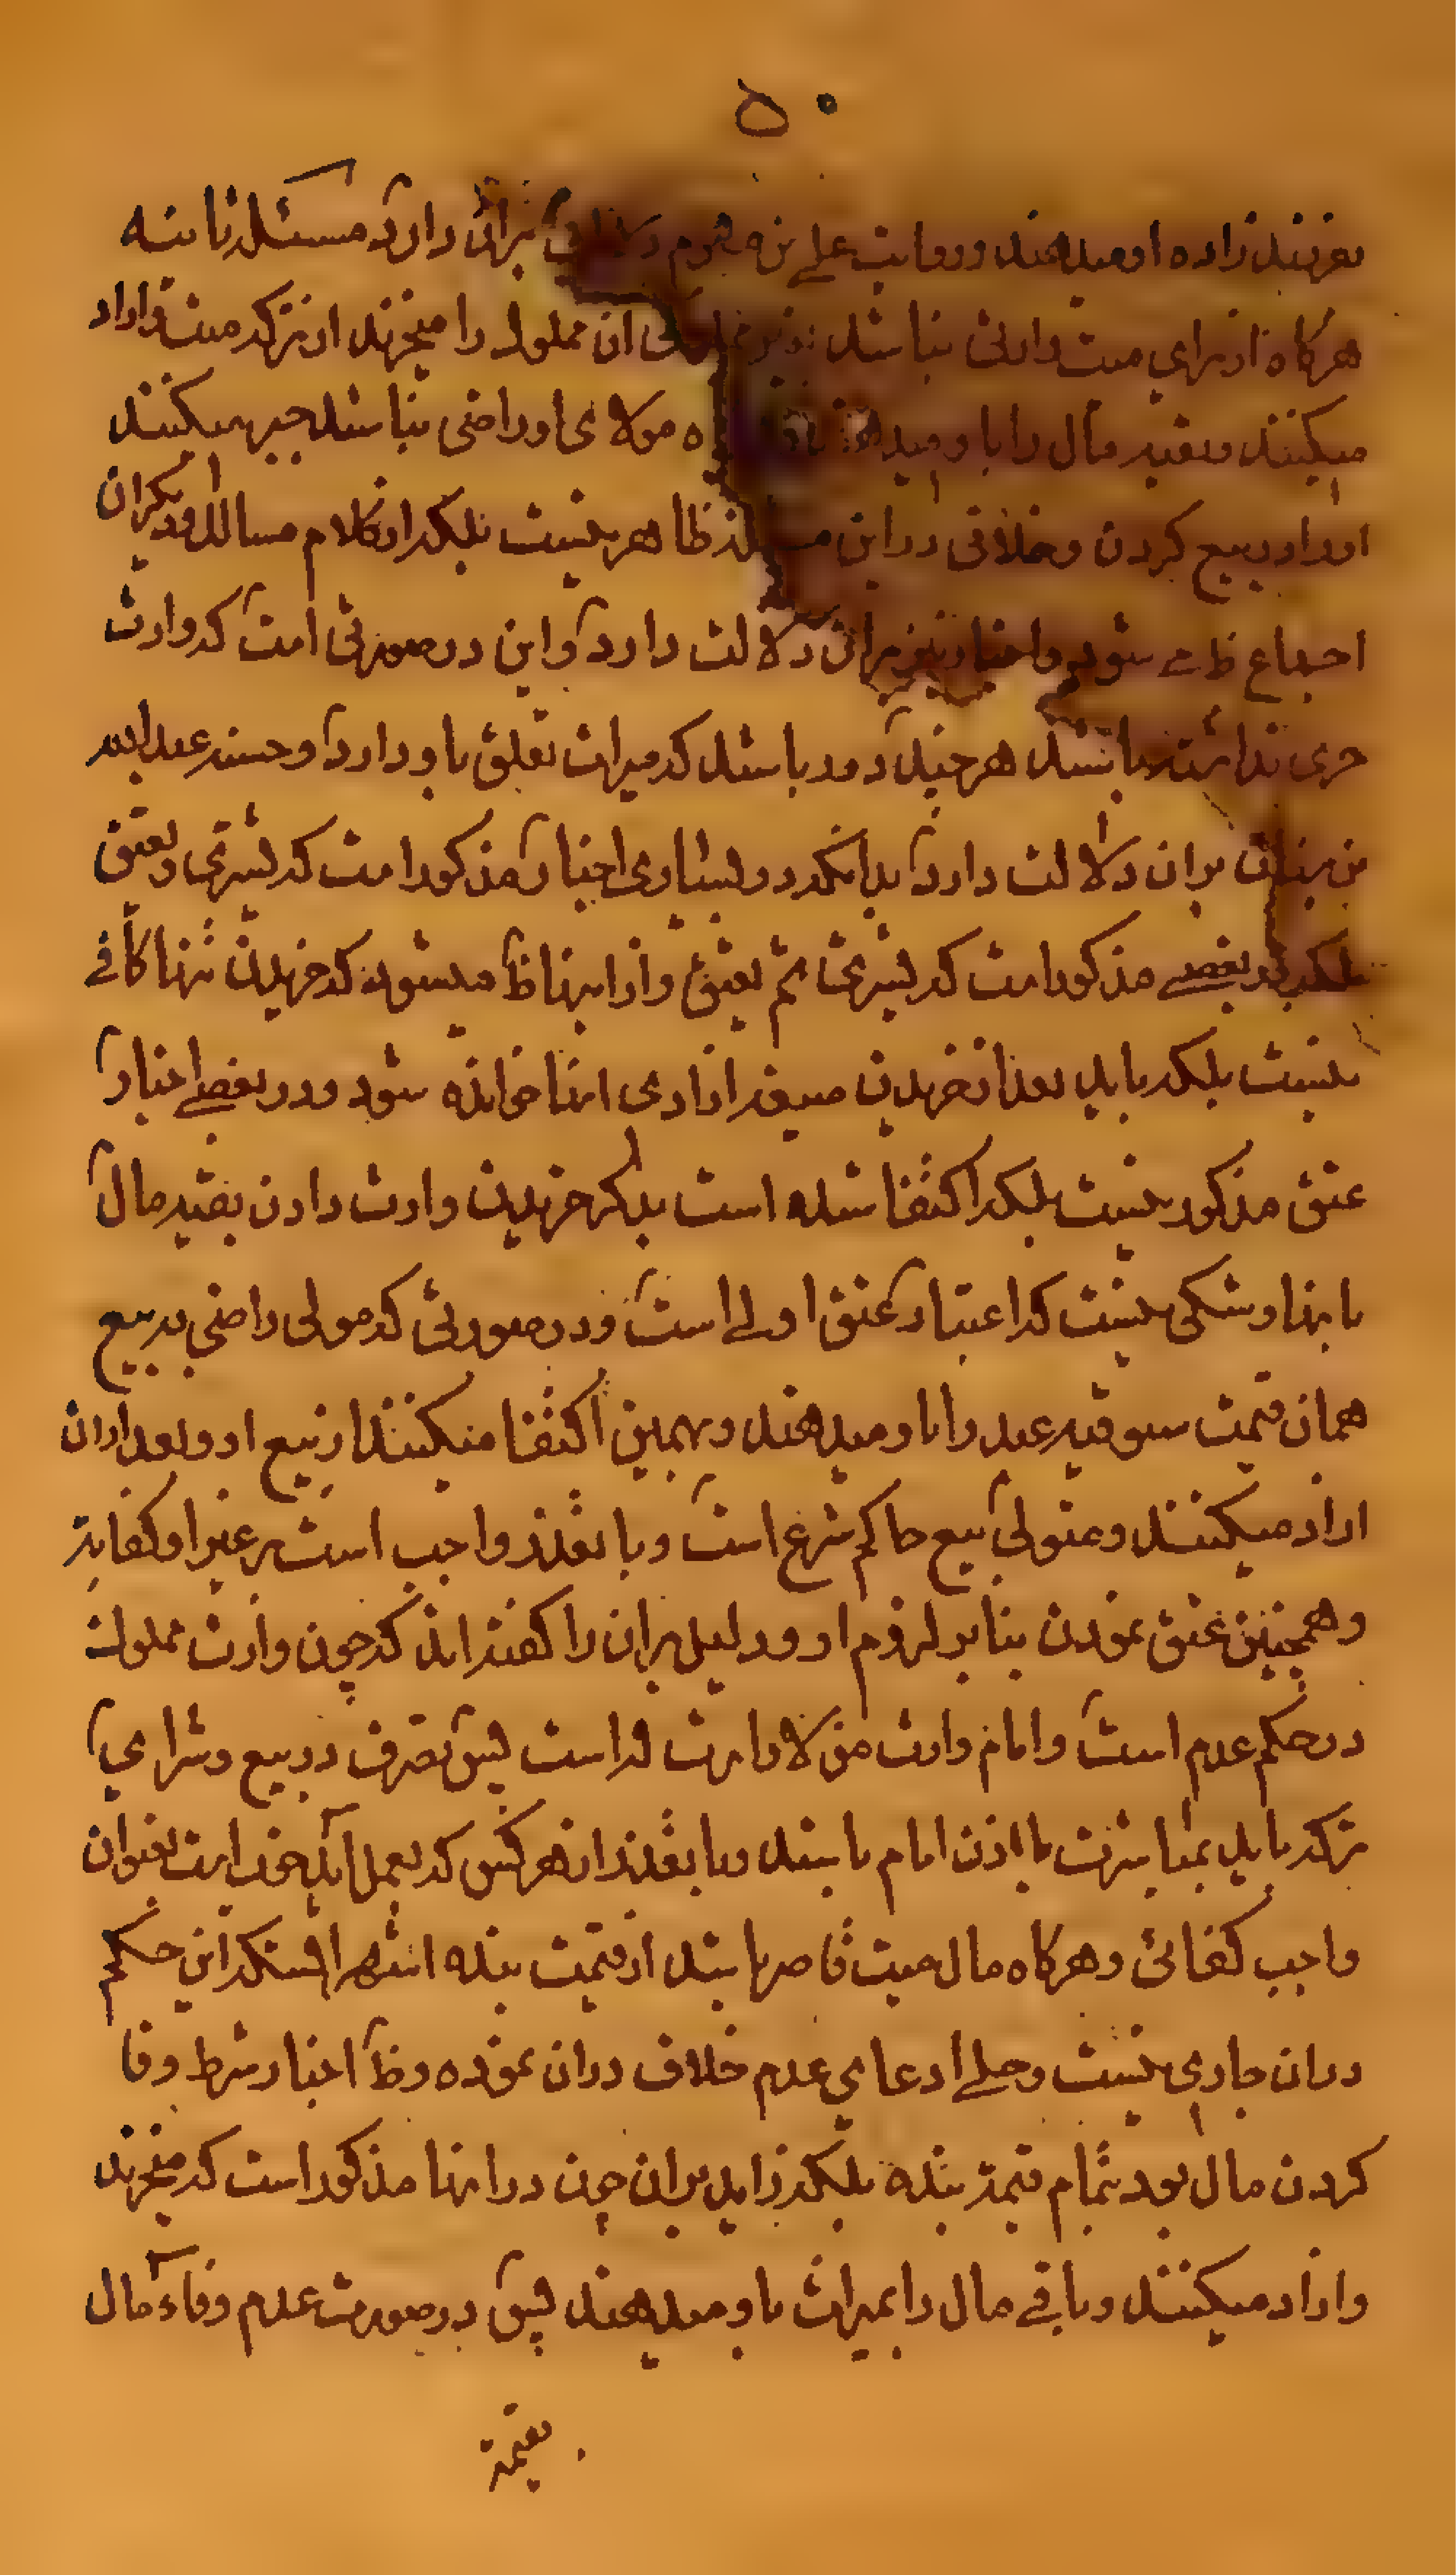 ۵۰
بفرزند زاده او میدهند و روایت علی بن مهزم دلالت بران دارد مسئله ثانیه
هرکاه از برای میت وارثی نباشد بغیر مملوکی ان مملوک را میخرند از ترکه میت و ازاد
میکنند و بقیه مال را باو میدهند مولای او راضی نباشد جبر میکنند
او را در بیع کردن و خلافی در این مسئله ظاهر نیست بلکه از کلام مسالک و دیکران
اجماع ظ می شود و اخبار نیز بران دلالت دارد و این در صورتی است که وارث
حری نداشته باشد هرچند دور باشد که میراث تعلق باو دارد و حسنه عبدالله
بن سنان بران دلالت دارد بدانکه در بسیاری اخبار مذکور است که یشتری و یعتق
بلکه در بعضی مذکور است که یشتری ثم یعتق و از اینها ظ میشود که خریدن تنها کافی
نیست بلکه باید بعد از خریدن صیغه ازادی اینها خوانده شود و در بعضی اخبار
عتق مذکور نیست بلکه اکتفا شده است بذکر خریدن وارث دادن بقیه مال
باینها و شکی نیست که اعتبار عتق اولی است و در صورتی که مولی راضی به بیع
همان قیمت سوقیه عبد را باو میدهند و بهمین اکتفا میکنند از بیع او و بعد از ان
ازاد میکنند و متولی بیع حاکم شرع است و با تعذر واجب است بر غیر او کفایة
و همچنین عتق نمودن بنا بر لزوم او و دلیل بران را کفته اند که چون وارث مملوک
در حکم عدم است و امام وارث من لا وارث له است پس تصرف در بیع و شرای
ترکه باید بمباشرت یا اذن امام باشد و با تعذر از هرکس که بعمل اید خوب است بعنوان
واجب کفائی و هرکاه مال میت قاصر باشد از قیمت بنده اشهر انستکه این حکم
در ان جاری نیست و حلی ادعای عدم خلاف در ان نموده و ظ اخبار شرط وفا
کردن مال بود بتمام قیمة بنده بلکه زاید بران چون در اینها مذکور است که میخرند
و ازاد میکنند و باقی مال را بمیراث باو میدهند پس در صورت عدم وفاء مال
بقیمة